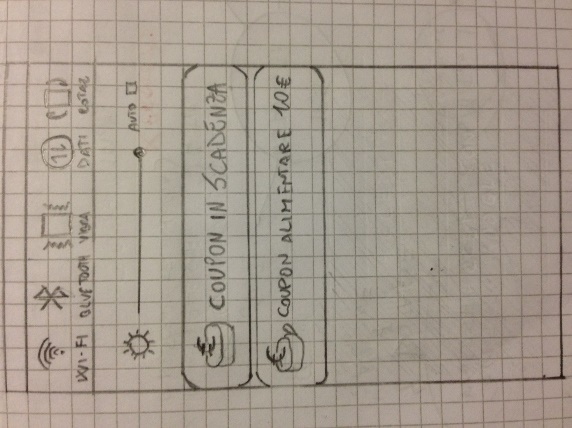 WI-FI BLUETOOTH VIBRA DATI ROTAZ
AUTO
COUPON IN SCADENZA
COUPON ALIMENTARE 10€